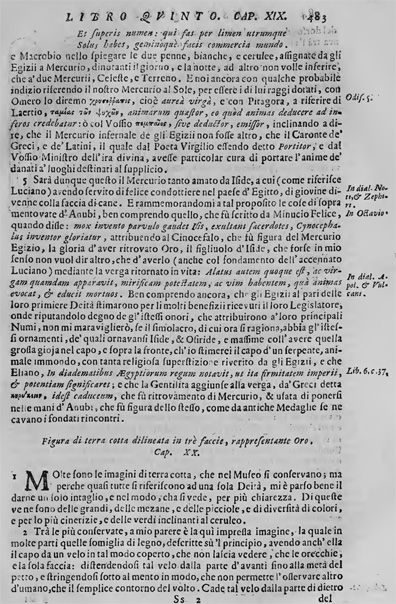 LIBRO QVINTO. CAP. XIX. 483
Et superis numen: qui fas per limen utrumque
Solus habes, geminoque facis commercia mundo.
e Macrobio nello spiegare le due penne, bianche, e cerulee, assignate da gli
Egizii a Mercurio, dinotanti il giorno, e la notte, ad altro non volle inferire,
che a' due Mercurii, Celeste, e Terreno. E noi ancora con qualche probabile
indizio riferendo il nostro Mercurio al Sole, per essere i di lui raggi dorati, con
Omero lo diremo cioè aurea virgà, e con Pitagora, a riferire di Odiss. 5.
Laertio, animarum quæstor, eo quòd animas deducere ad in-
feros credebatur: ò col Vossio sive deductor, emissor, inclinando a di-
re, che il Mercurio infernale de gli Egizii non fosse altro, che il Caronte de'
Greci, e de' Latini, il quale dal Poeta Virgilio essendo detto Portitor, e dal
Vossio Ministro dell'ira divina, avesse particolar cura di portare l'anime de'
danati a' luoghi destinati al supplicio.
5 Sarà dunque questo il Mercurio tanto amato da Iside, a cui (come riferisce In dial. No-
Luciano) avendo servito di felice condottiere nel paese d'Egitto, di giovine di- ti, & Zephy-
venne colla faccia di cane. E rammemorandomi a tal proposito le cose di sopra ri.
mentovate d'Anubi, ben comprendo quello, che fù scritto da Minucio Felice, In Octavio.
quando disse: mox invento parvulo gaudet Isis, exultant sacerdotes, Cynocepha-
lus inventor gloriatur, attribuendo al Cinocefalo, che fù figura del Mercurio
Egizio, la gloria d'aver ritrovato Oro, il figliuolo d'Iside, che forse in mio
senso non vuol dir altro, che d'averlo (anche col fondamento dell'accennato
Luciano) mediante la verga ritornato in vita: Alatus autem quoque est, ac vir- In dial. A-
gam quamdam apparavit, mirificam potestatem, ac vim habentem, quâ animas pol. & Vul-
evocat, & educit mortuos. Ben comprendo ancora, che gli Egizii al pari delle cani.
loro primiere Deità stimarono per li molti beneficii ricevuti il loro Legislatore,
onde riputandolo degno de gl'istessi onori, che attribuirono a' loro principali
Numi, non mi maraviglierò, se il simolacro, di cui ora si ragiona, abbia gl'istes-
si ornamenti, de' quali ornavansi Iside, & Osiride, e massime coll'avere quella
grossa gioja nel capo, e sopra la fronte, ch'io stimerei il capo d'un serpente, ani-
male immondo, con tanta religiosa superstizione riverito da gli Egizii, e che
Eliano, In diadematibus Ægyptiorum regum notavit, ut ita firmitatem imperii, Lib. 6. c. 37.
& potentiam significaret; e che la Gentilità aggiunse alla verga, da' Greci detta
idest caduceum, che fù ritrovamento di Mercurio, & usata di ponersi
nelle mani d'Anubi, che fù figura dello stesso, come da antiche Medaglie se ne
cavano i fondati rincontri.
Figura di terra cotta dilineata in trè faccie, rappresentante Oro,
Cap. XX.
1 MOlte sono le imagini di terra cotta, che nel Museo si conservano; ma
perche quasi tutte si riferiscono ad una sola Deità, mi è parso bene il
darne un solo intaglio, e nel modo, che si vede, per più chiarezza. Di queste
ve ne sono delle grandi, delle mezane, e delle picciole, e di diversità di colori,
e per lo più cinerizie, e delle verdi inclinanti al ceruleo.
2 Trà le più conservate, a mio parere è la quì impressa imagine, la quale in
molte parti quelle somiglia di legno, descritte sù 'l principio, avendo anch'ella
il capo da un velo in tal modo coperto, che non lascia vedere, che le orecchie,
e la sola faccia: distendendosi tal velo dalla parte d'avanti sino alla metà del
petto, e stringendosi sotto al mento in modo, che non permette l'osservare altro
d'umano, che il semplice contorno del volto. Cade tal velo dalla parte di dietro
Ss 2 del